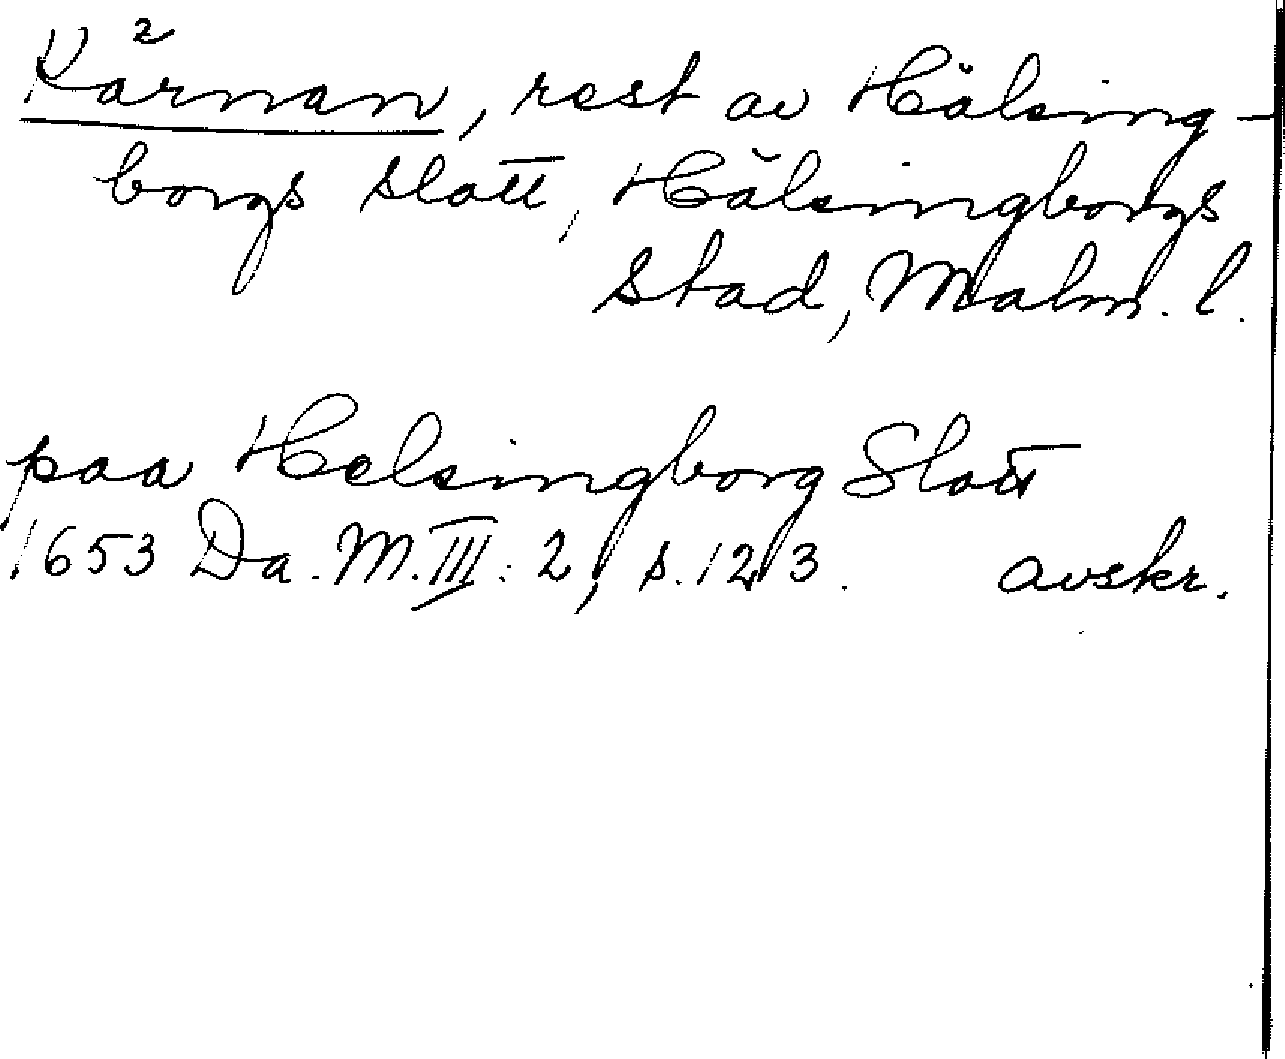 Kärnan, rest av Hälsing-
borgs slott, Hälsingborgs
stad, Malm. l.
paa Helsingborg Slott
1653 Da. M. III: 2, s. 123. avskr.